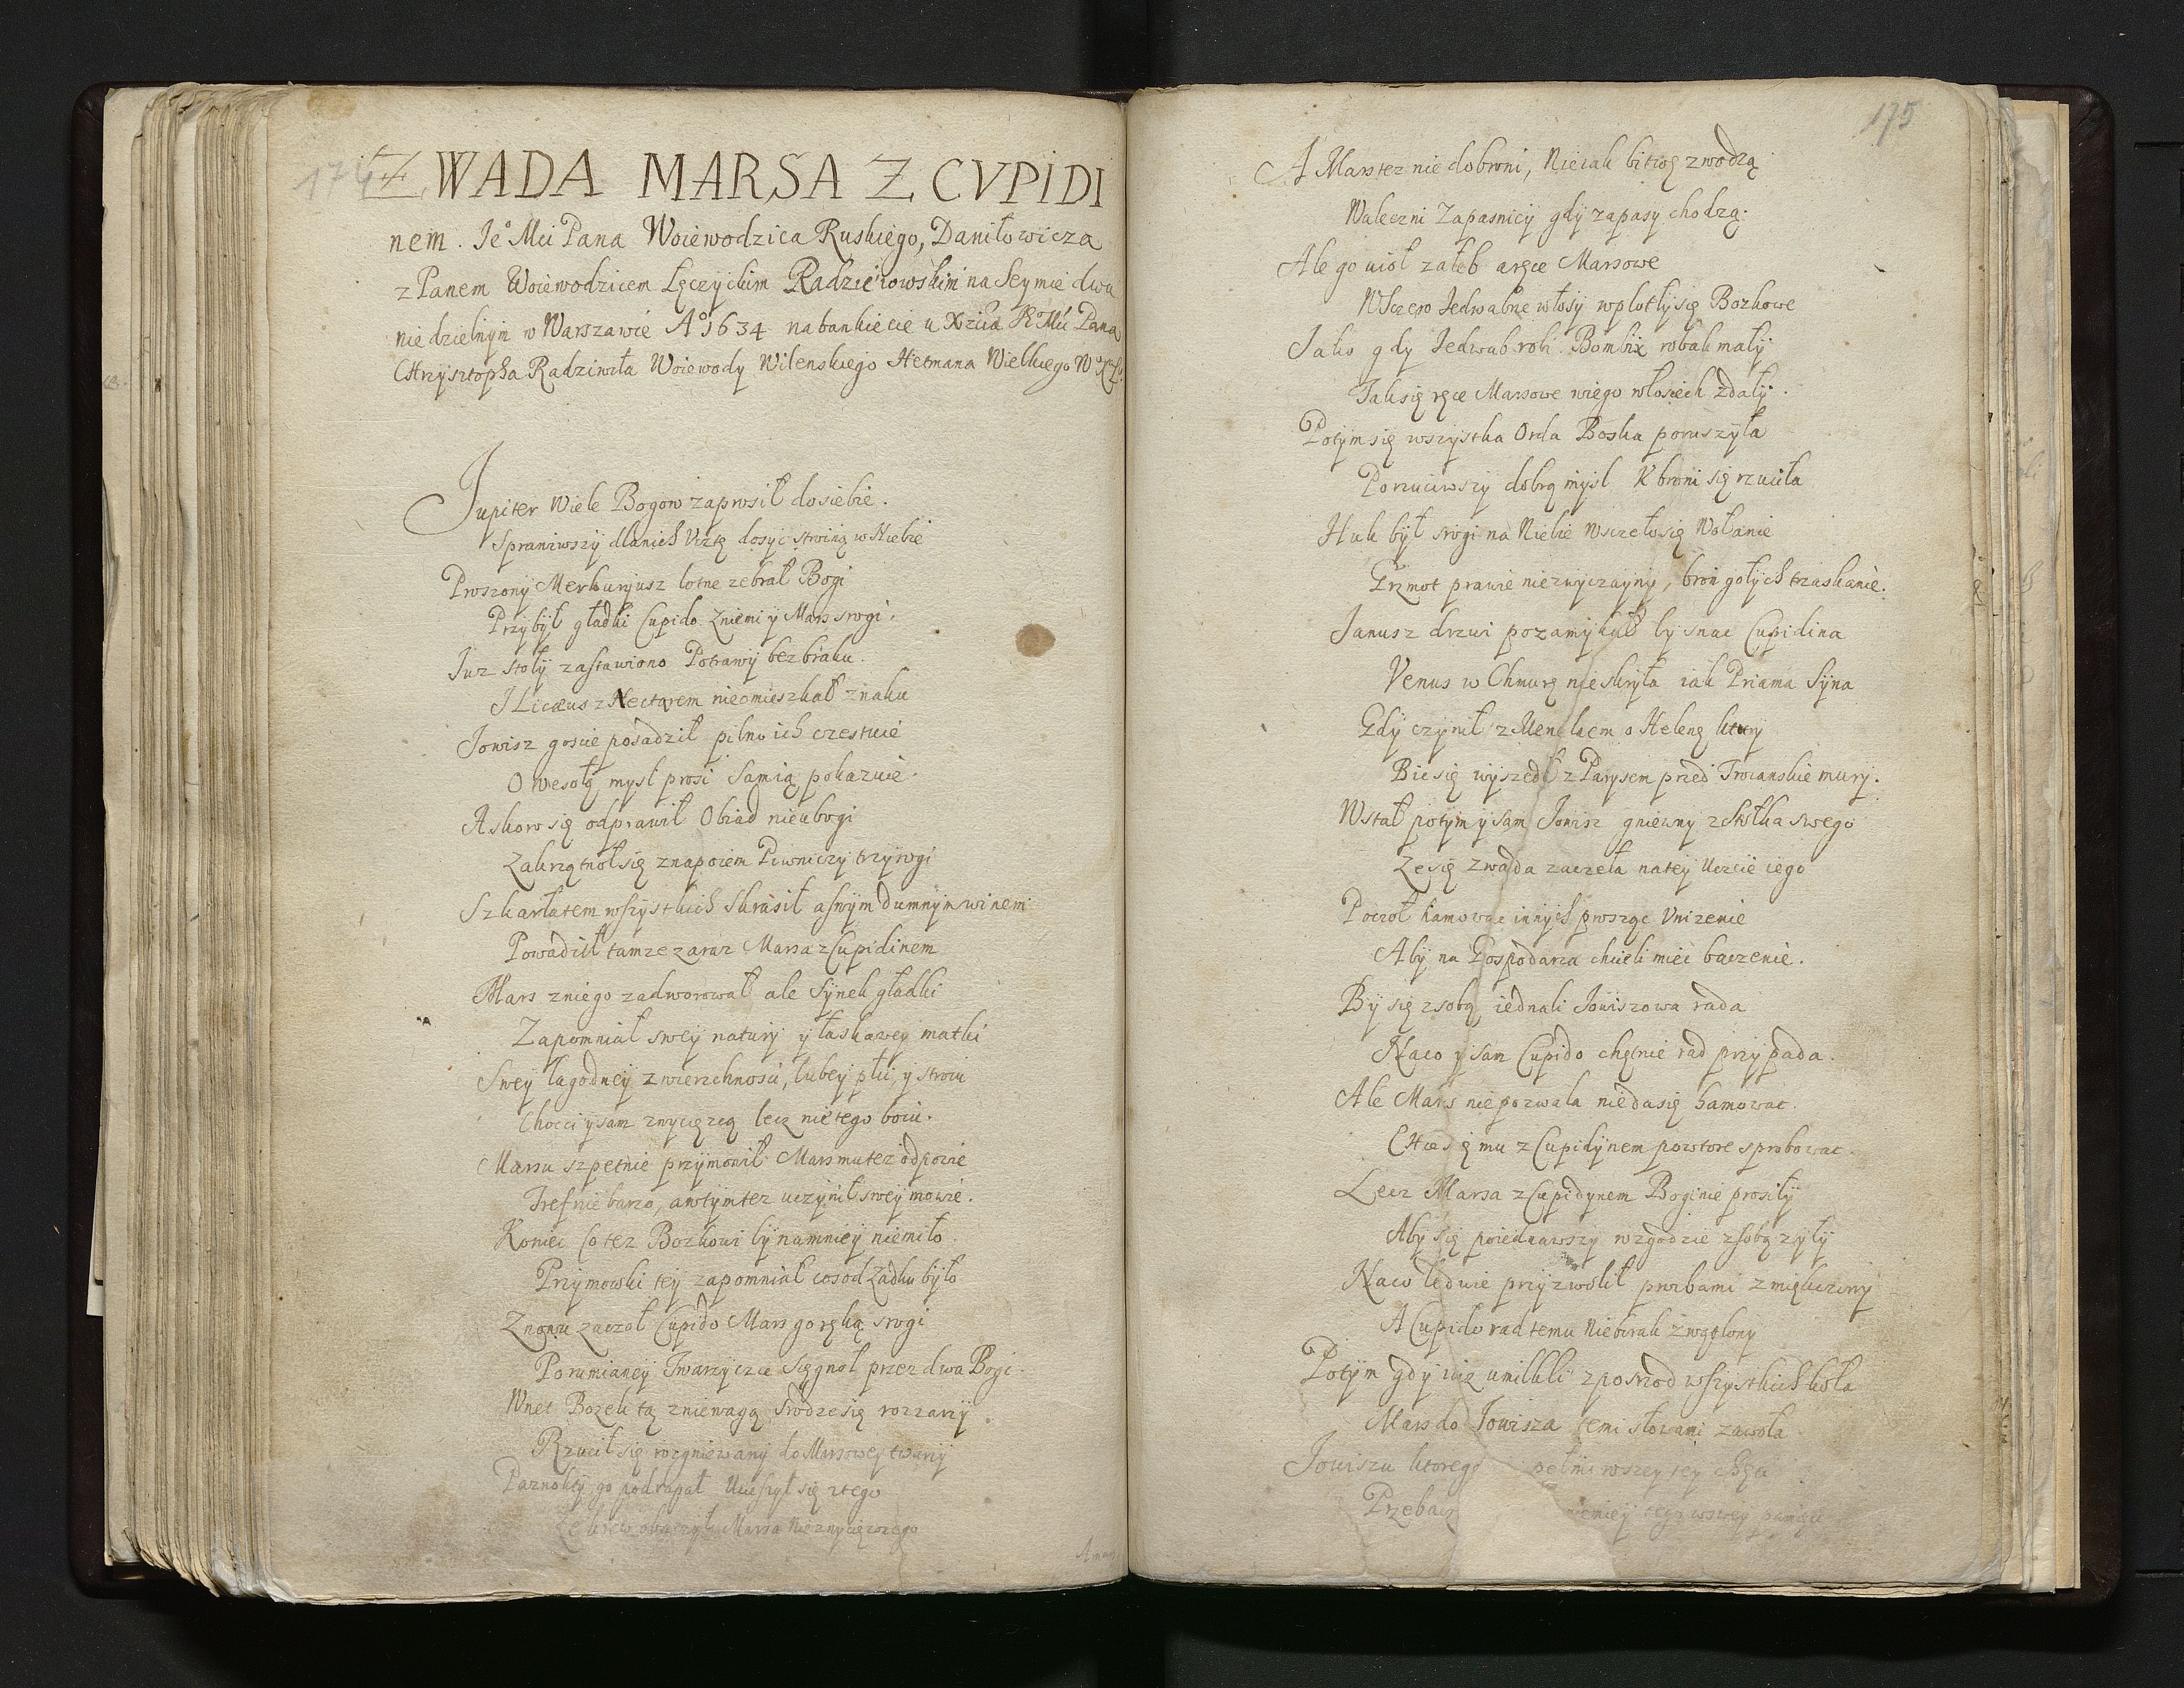 174
ZWADA MARSA Z CVPIDI
nem. Ie° Mci Pana Woiewodzica Ruskiego, Daniłowicza
z Panem Woiewodzicem Łęczyckim Radzieiowskim na Seymie dwu
niedzielnym w Warszawie A° 1634 na bankiecie u Xzica Pana
CHrysztopha Radziwiła Woiewody Wilenskiego Hetmana Wielkiego
Jupiter Wiele Bogow zaprosił do siebie.
Sprawiwszÿ dlanich Vcztę dosÿc stroiną w Niebie
Proszonÿ Merkurÿusz lotne zebrał Bogi
Przÿbÿł gładki Cupido zniemi ÿ Mars srogi.
Iuz stołÿ zastawiono Potrawÿ bez braku.
I Licæus z Nectarem nieomieszkał znaku
Jowisz goscie posadził pilno ich czestuie
O wesołą mysl prosi samią pokazuie.
A skoro się odprawił Obiad nieubogi
Zakrzątnoł się znapoiem Piwniczÿ trzÿrogi
Szkarłatem wszÿstkich skrasił aswÿm dumnÿm winem
Powadził tamze zaraz Marsa z Cupidinem
Mars zniego zadworował ale Sÿnek gładki
Zapomniał sweÿ naturÿ ÿ łaskawey matki
Sweÿ łagodneÿ zwierzchnosci, lubeÿ płci, ÿ stroiu
Chocci ÿ sam zwÿcięzcą lecz nie tego boiu.
Marsu szpetnie przÿmowił. Mars mu tez odpowie
Trefnie barzo, a wtÿm tez uczÿnił sweÿ mowie.
Koniec Co tez Bozkowi bÿnamnieÿ niemiło
Przÿmowki teÿ zapomniał cos od Zadku bÿło
Znowu zaczoł Cupido Mars go ręką srogi
Po rumianeÿ Twarzÿczce sięgnoł przez dwa Bogi
Wnet Bozek tą zniewagą srodze się rozzarzÿ
Rzucił się rozgniewanÿ do Marsoweÿ twarzÿ
Paznokty go podrapał Ucieszÿł się ztego
Ze krew obaczÿł Marsa Niezwÿcięzonego
A mars
175
A Mars tez nie dobroni, Nieiak bitwę zwodzą
Waleczni Zapasnicÿ gdÿ zapasy chodzą.
Ale go uioł załeb a ręce Marsowe
W Sczero Jedwabne włosÿ wplotłÿ się Bozkowe
Jako gdÿ Jedwab robi Bombix robak małÿ
Tak się ręce Marsowe w iego włosiech zdałÿ.
Potÿm się wszÿstka Orda Boska poruszÿła
Porzuciwszÿ dobrą mÿsl K broni się rzuciła
Huk bÿł srogi na Niebie Wsczeło się Wołanie
Grzmot prawie niezwÿczaÿnÿ, bron gołÿch trzaskanie.
Janusz drzwi pozamÿkał bÿ snac Cupidina
Venus w Chmurę nieskrÿła iak Priama Sÿna
Gdÿ czÿnił z Menelaem o Helenę
Bic się wÿszedł z Parÿsem przed Troianskie murÿ.
Wstał potÿm ÿ sam Jowisz gniewny z Stołka swego
Ze się zwada zaczeła na teÿ Uczcie iego
Poczoł hamowac innÿch prosząc Vnizenie
Abÿ na Gospodarza chcieli miec baczenie.
Bÿ się z sobą iednali Jowiszowa rada
Naco ÿ sam Cupido chętnie rad przÿpada.
Ale Mars niepozwala niedasię hamowac.
CHce się mu z Cupidÿnem powtore sprobowac.
Lecz Marsa z Cupidÿnem Boginie prosiłÿ
Abÿ się poiednawszÿ w zgodzie z sobą zÿłÿ
Naco ledwie przÿzwolił prozbami zmiękczonÿ
A Cupido rad temu Nieborak zwątlony
Potÿm gdÿ iuz umilkli z posrzod wszÿstkich koła
Mars do Jowisza temi słowami zawoła
Jowiszu ktorego pełni wszeÿ teÿ chęci
Przebacz tego wszeÿ pamięci